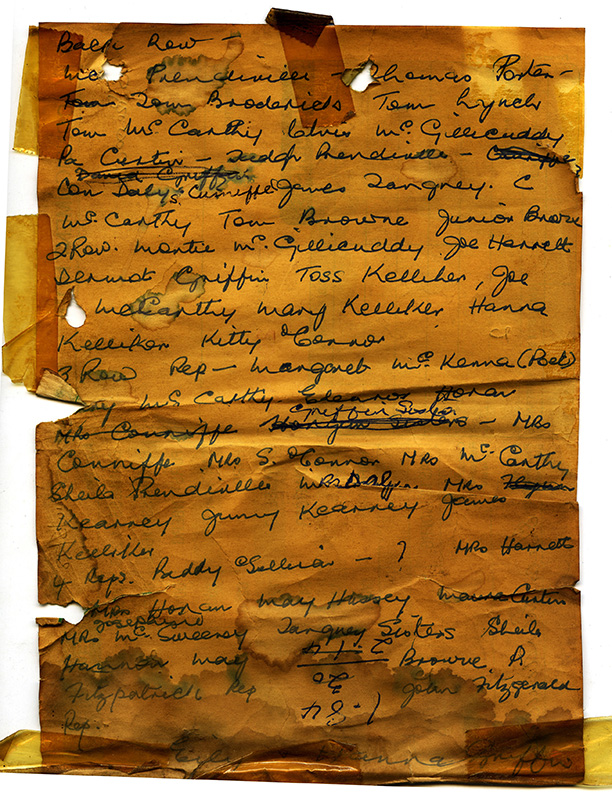 Back Row -
Mc Prendiville - Thomas Porter -
Tom Tom Broderick Tom Lynch
Tom Mc Carthy Chris Mc Gillicuddy
Pa Curtin - Teddy Prendiville - Cunniffe
David Griffin
Con Daly S. Cunniffe James Tangney. C
Mc Carthy Tom Browne Junior Browne
2 Row. Montie Mc Gillicuddy Joe Harnett
Dermot Griffin Toss Kelliher, Joe
McCarthy Mary Kelliher Hanna
Kelliher Kitty O'Connor
3 Row Rep - Margaret Mc Kenna (Poet)
Mc Carthy Eleanor Horan
Griffin Sisters
Mrs Cunniffe Horgan Sisters - Mrs
Cunniffe Mrs S. O'Connor Mrs Mc Carthy
Sheila Prendiville Mrs Daly Mrs
Kearney Jimmy Kearney James
Kelliher
4 Rep. Paddy O'Sullivan - ? Mrs Harnett
Horan May Hussey Maura Curtin
Josephine
Mrs McSweeney Tangney Sisters Sheila
Hannon May Browne P.
Fitzpatrick Rep 20 John Fitzgerald
Rep. 1-84
Hanna Griffin